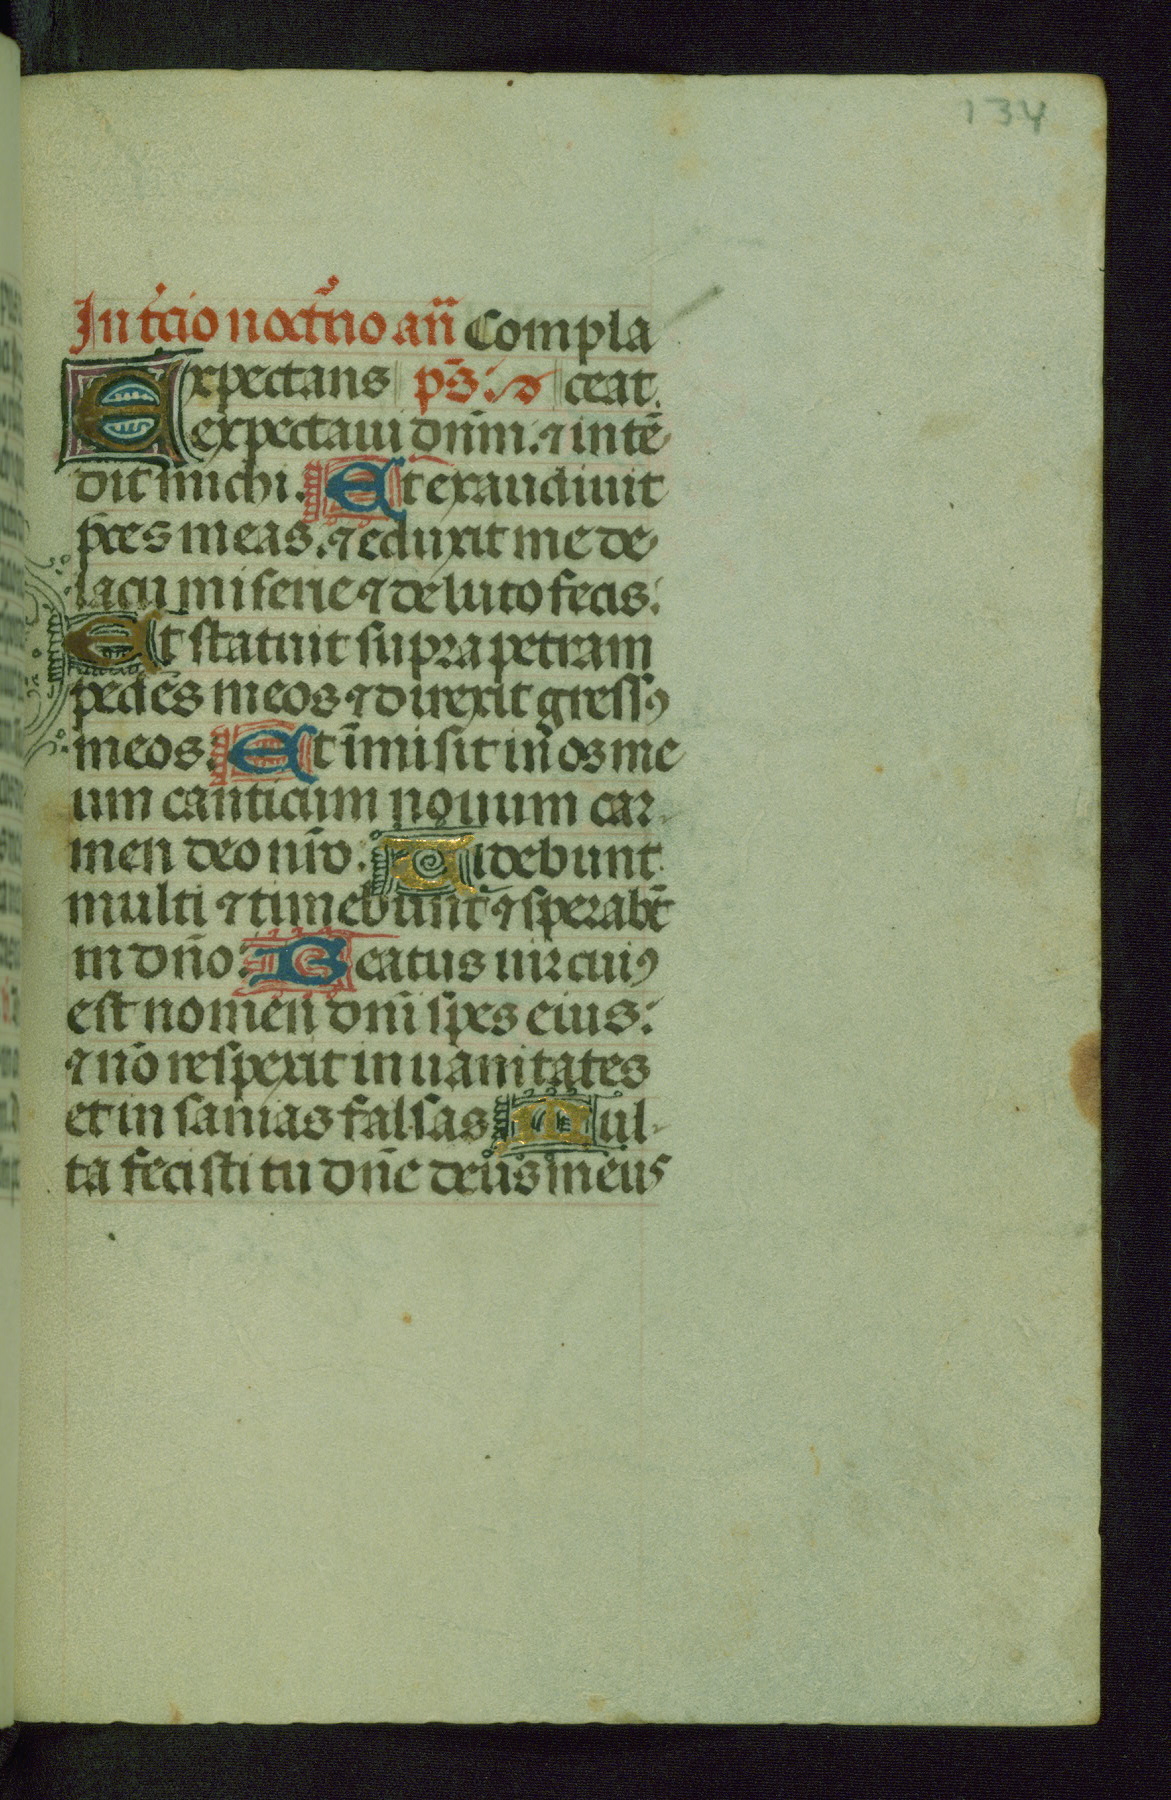 134
In t̾cio noct̾no an̄ Compla
Expectans ps̄. d ceat.
expectaui dn̄m. ⁊ intē
dit michi. Et exaudiuit
p̄ces meas. ⁊ eduxit me de
lacu miserie ⁊ de luto fecis.
Et statuit supra petram
pedes meos ⁊ direxit gressꝰ
meos. Et īmisit in os me
um canticum nouum car
men deo nr̄o. Uidebunt
multi ⁊ timebunt ⁊ sperabt̄
in dn̄o. Beatus uir cuiꝰ
est nomen dn̄i spes eius:
⁊ nō respexit in uanitates
et in sanias falsas Mul
ta fecisti tu dn̄e deus meus